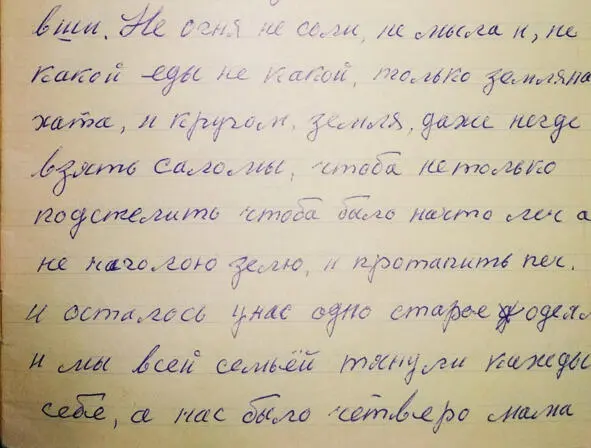 вши. Не огня не соли, не мыла н, не
какой еды не какой, только земляна
хата, и кругом, земля, даже негде
взять саломы, чтоба нетолько
подстелить чтоба было начто леч а
не наголою землю, и протапить печ.
и осталось унас одно старое одеял
и мы всей семьёй тянули кажды
себе, а нас было четверо мама